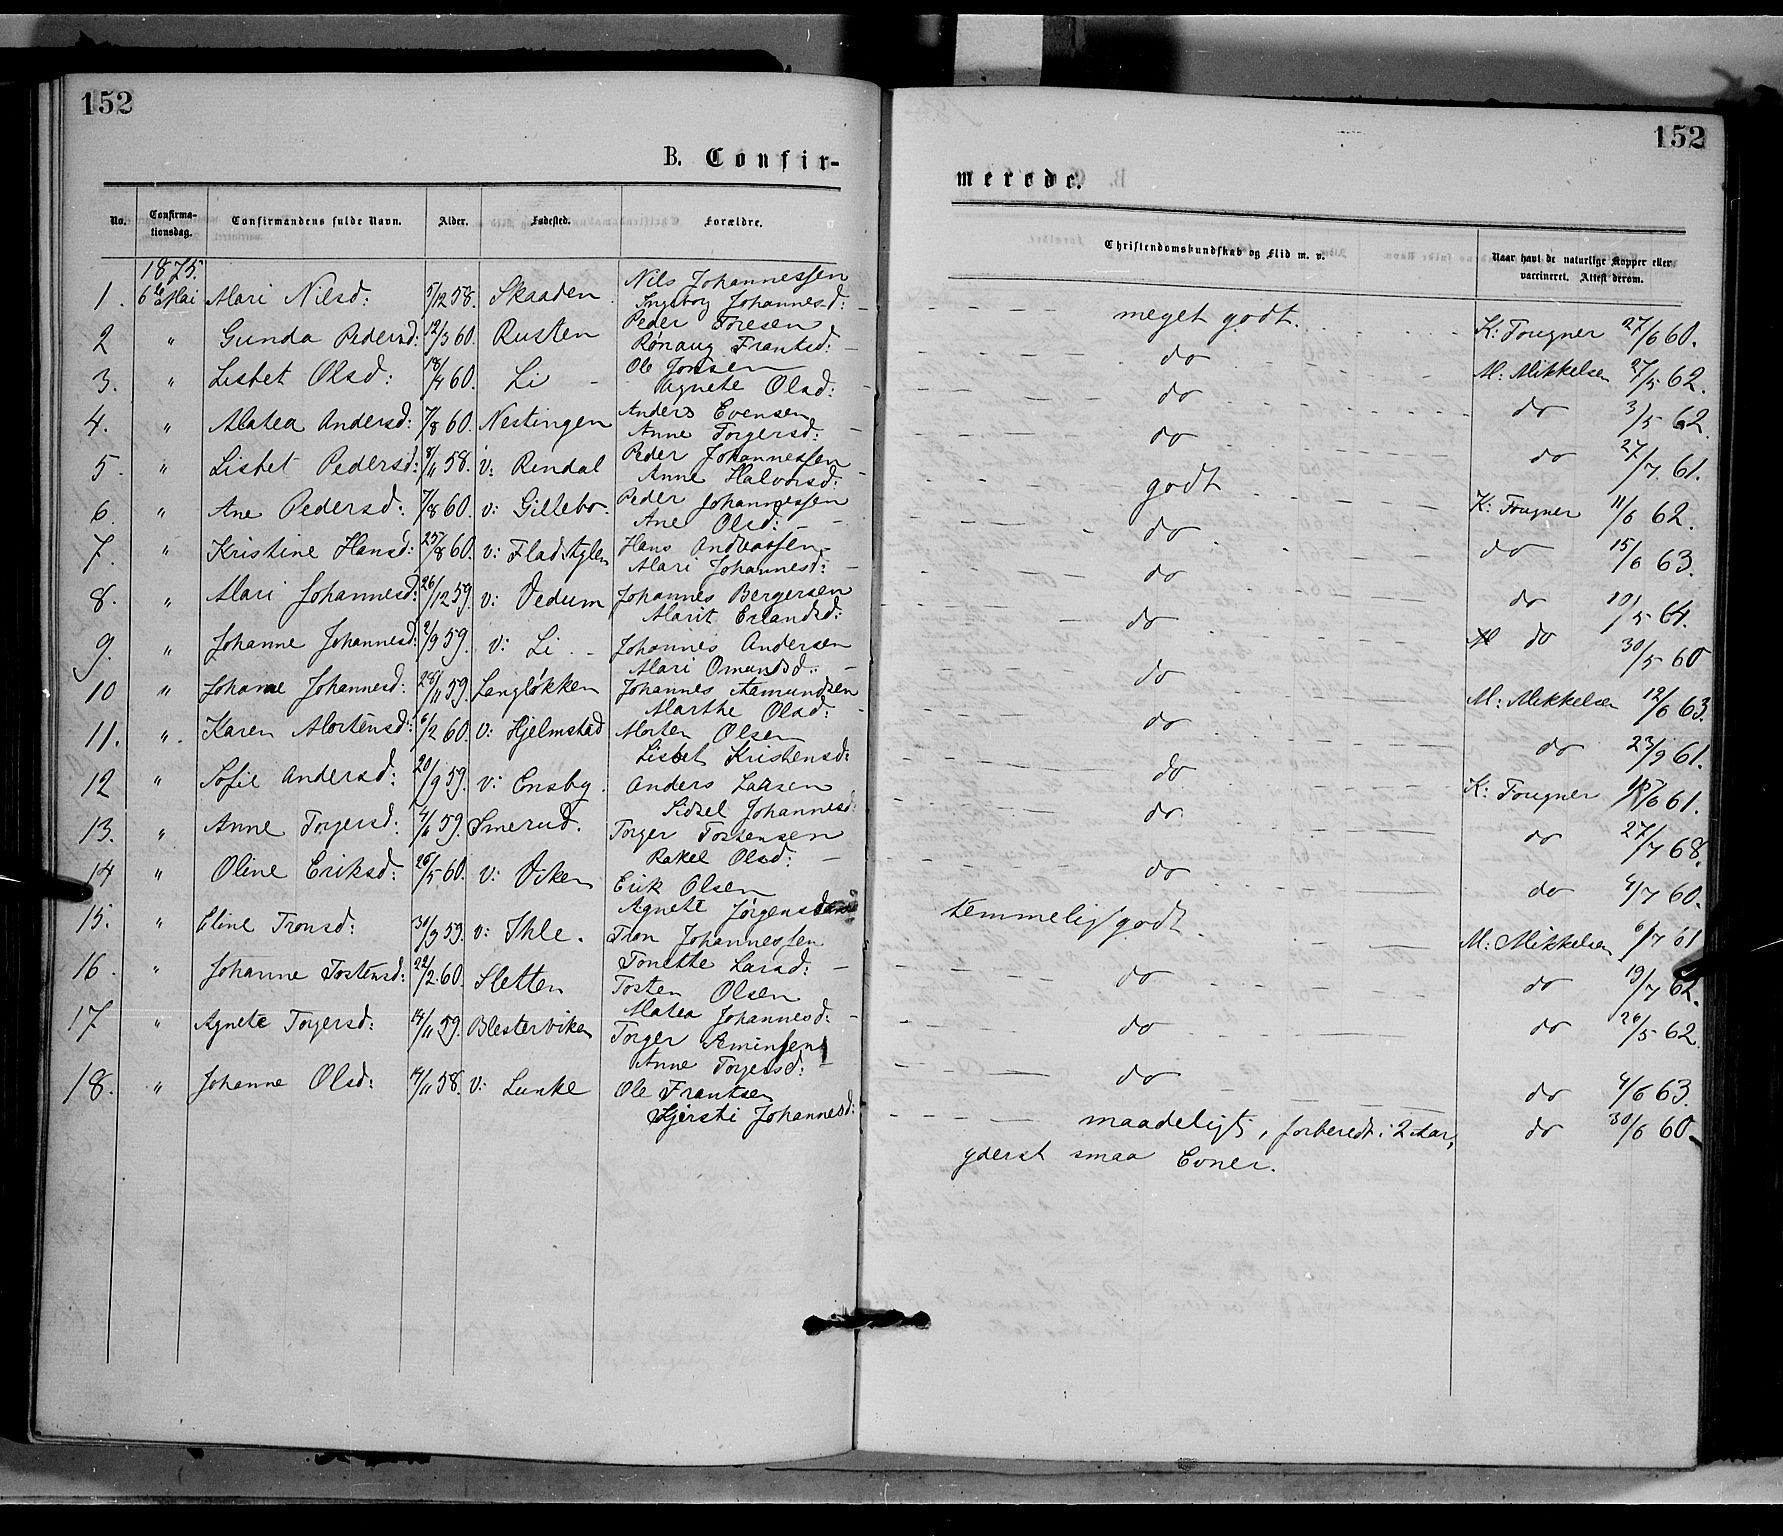 152
152
B. Confir-
merede.
No. Confirma-tionsdag. Confirmandens fulde Navn. Alder. Fødested. Forældre. Christendomskundskab og Flid m. v. Naar havt de naturlige Kopper eller vaccineret. Attest derom.
1875.
1. 6te Mai Mari Nilsd: 5/12 58. Skaaden Nils Johannessen
Ingeborg Johannesd: meget godt. K: Fougner 27/6 60.
2 " Gunda Pedersd: 12/3 60. Rusten Peder Toresen
Rønaug Frantsd: do M: Mikkelsen 27/5 62.
3. " Lisbet Olsd: 18/4 60. Li Ole Jonsen
Agnete Olsd: do do 3/5 62.
4. " Matea Andersd: 7/8 60. Nestingen Anders Evensen
Anne Torgersd: do do 27/7 61.
5. " Lisbet Pedersd: 8/11 58. v: Rindal Peder Johannessen
Anne Halvorsd: godt K: Fougner 11/6 62.
6. " Ane Pedersd: 7/8 60. v: Gillebo Peder Johannessen
Ane Olsd: do do 15/6 63.
7. " Kristine Hansd: 25/8 60. v: Fladstylen Hans Andreassen
Mari Johannesd: do do 10/5 61.
8. " Mari Johannesd: 26/12 59. v: Vedum Johannes Bergersen
Marit Erlandsd: do do 30/5 60
9. " Johanne Johannesd: 2/9 59. v: Li Johannes Andersen
Mari Omundsd: do M: Mikkelsen 12/6 63.
10 " Johanne Johannesd: 28/11 59. Langløkken Johannes Aamundsen
Marthe Olsd: do do 23/9 61.
11. " Karen Mortensd: 6/2 60. v: Hjelmstad Morten Olsen
Lisbet Kristensd: do K: Fougner /6 61.
12 " Sofie Andersd: 20/9 59. v: Ensby Anders Larsen
Sidsel Johannesd: do do 27/7 68.
13. " Anne Torgersd: 4/11 59. Smerud. Torger Tostensen
Rakel Olsd: do do 4/7 60.
14 " Oline Eriksd: 26/5 60. v: Viken Erik Olsen
Agnete Jørgensd temmelig godt. M: Mikkelsen 6/7 61
15. " Eline Tronsd: 30/9 59. v: Ihle. Tron Johannessen
Tonette Larsd: do do 19/7 62.
16. " Johanne Tostensd: 22/2 60. Sletten Tosten Olsen
Matea Johannesd: do do 26/5 62.
17 " Agnete Torgersd: 14/11 59. Blesterviken Torger Amundsen
Anne Torgersd: do do 4/6 63.
18. " Johanne Olsd: 17/11 58. v: Lunke Ole Frantsen
Kjersti Johannesd: maadeligt, forberedt i 2 Aar, do 30/6 60
yderst smaa Evner.